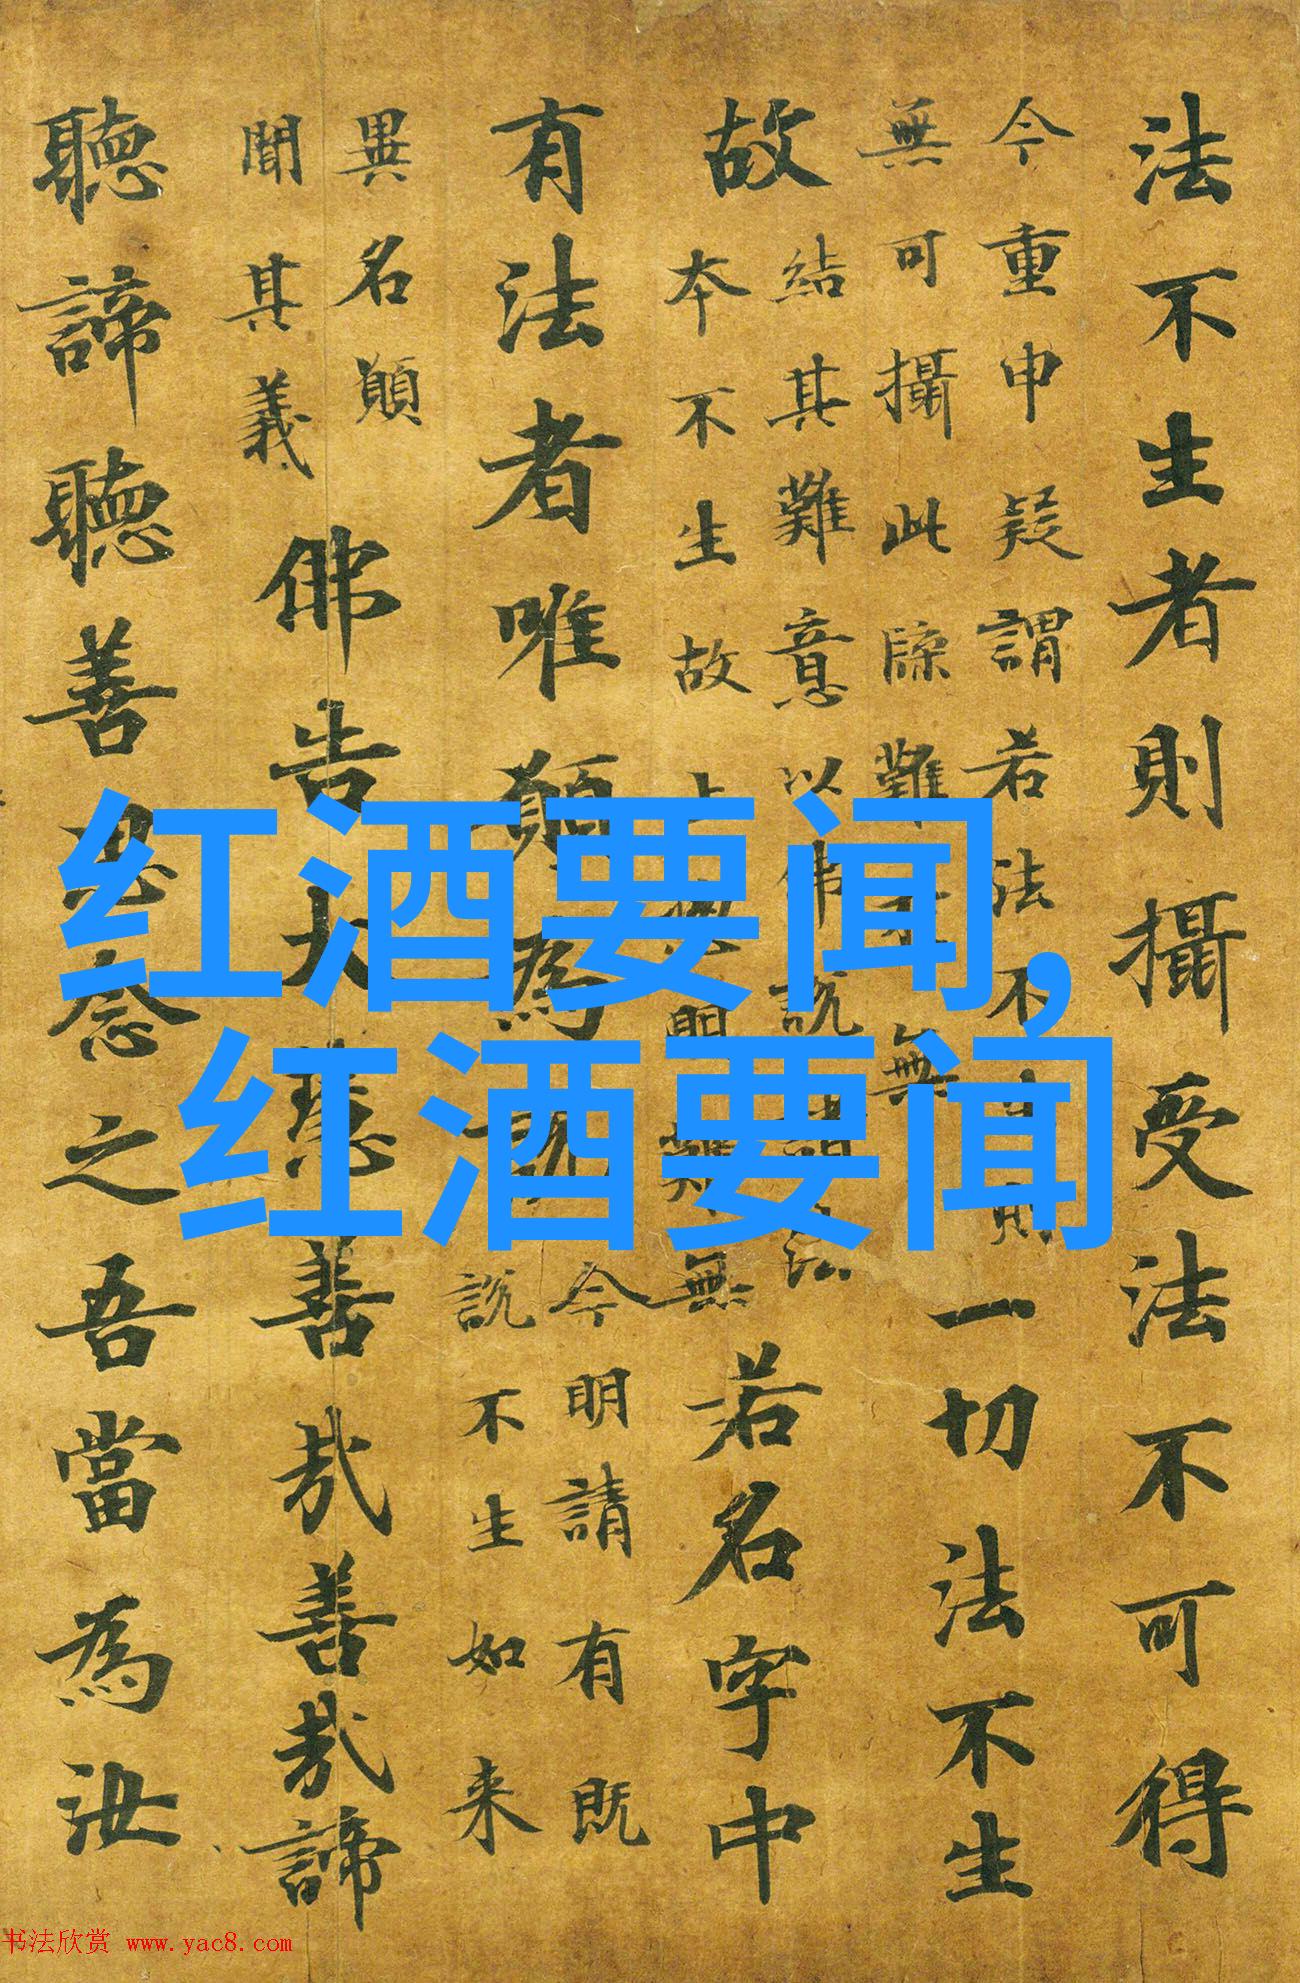 法不生者則攝受法不可得
今重申疑謂若法不生則
無可攝此牒難無
一切法不生
故
結其難意以佛說諸法
本不生故難無
若名字中
有法者唯願為說
今明請有既
說不生如来
異名願
聞其義
佛告大慧善哉善哉諦
聽諦聽善思念之吾當為汝
红酒要闻,
红酒要闻
书法欣赏 www.yac8.com